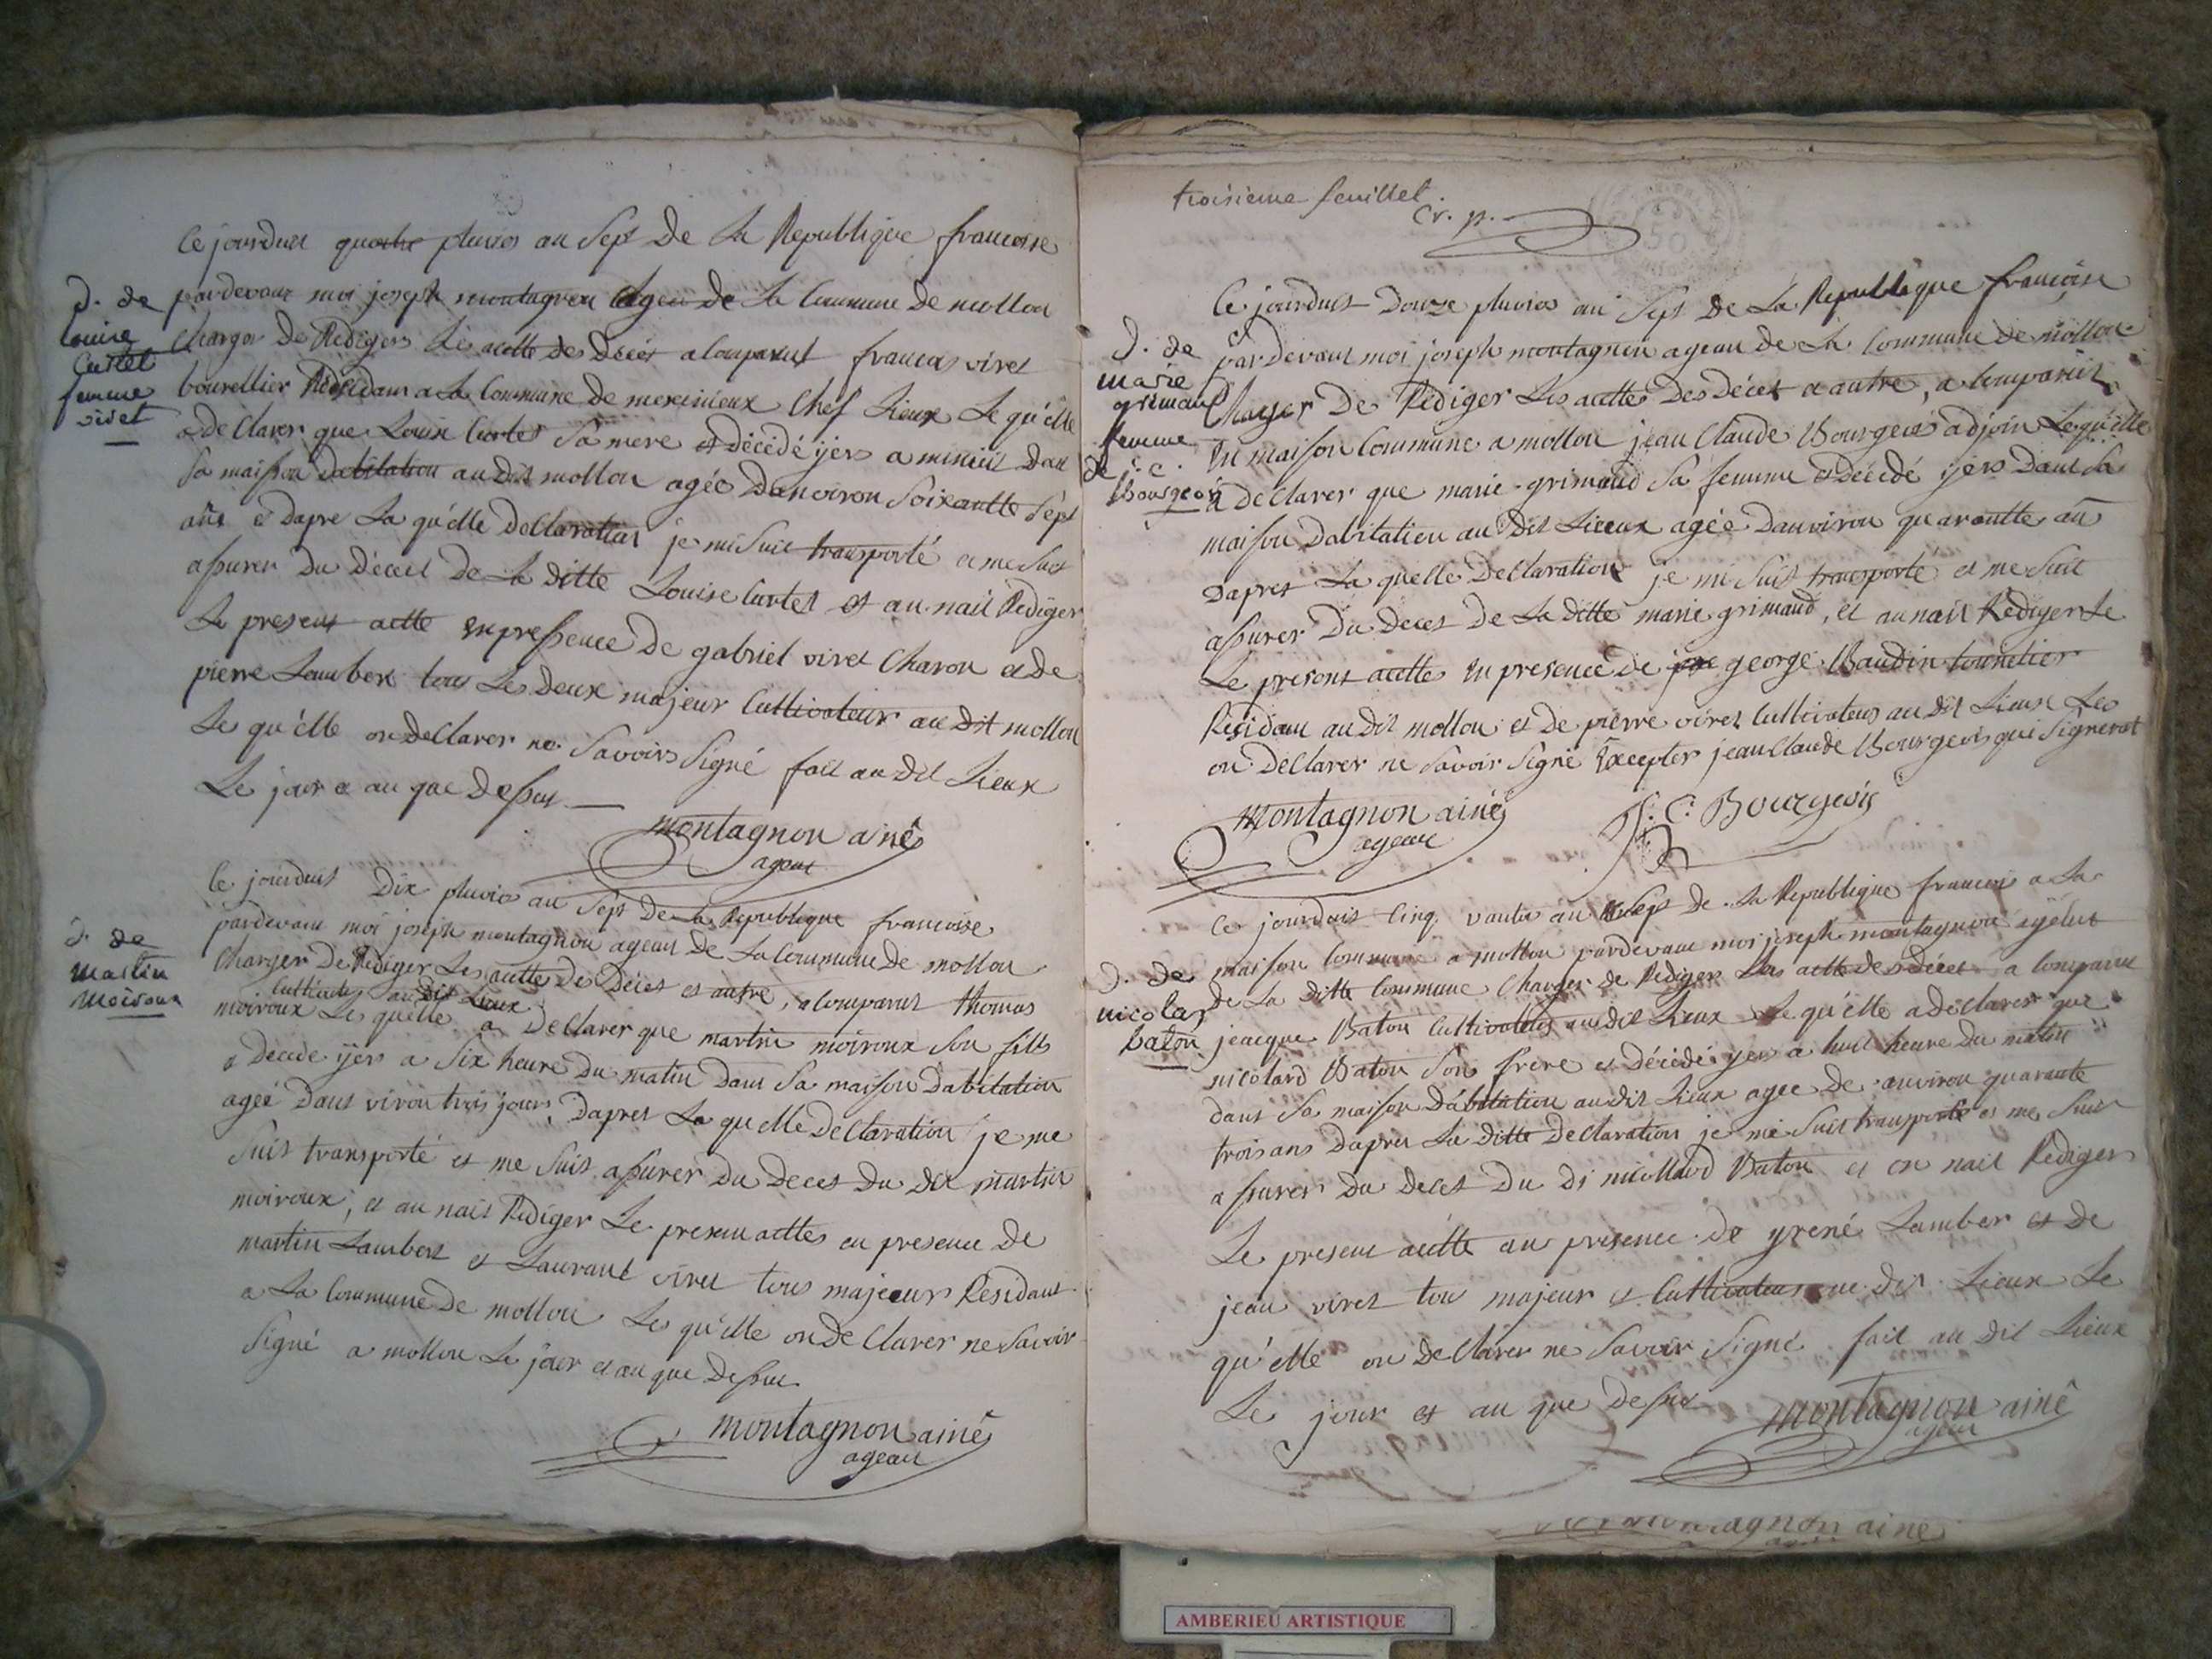 Ce jourdui quatre pluvios an Sept De La Republique francoise
D. de
Louise
Curtet
femme
vivet
pardevant moi joseph montagnon Agen de La Commune de mollon
Charger De Rediger Les actte des décés a Comparut francois viret
bourellier Résidans a La Commune de meximieux Chef Lieux Le qu'elle
a de Clarer que Louise Curtet Sa mere est décédé ijers a minuit Dans
Sa maison Dabitation au Dit mollon agée Danviron Soixantte Sept
ans et Dapre La qu'elle De Claration je mi Suis transporté et me Suis
assurer Du Décest De La Ditte Louise Curtet et au nait Rediger
Le present actte En pressence De gabriel viret Charon et de
pierre Lamber tous Les Deux majeur Culltivateur au Dit mollon
Le qu'elle on de Clarer ne Savoirs Signé fait au Dit Lieux
Le jour et an que Dessus
montagnon ainé
agent
Ce jourduis Dix pluvios an Sept De La Republique francoise
D. de
Martin
Moiroux
pardevant moi joseph montagnon agean De La Commune De mollon
Charger De Rediger Les actte De Déces et autre, a Comparut thomas
Culltivateur au Dit Lieux
moiroux Le quelle a De Clarer que martin moiroux Son fills
a Decede ijers a Six heure Du matin Dans Sa maison Dabitation
agée Dans viron trois jours, Dapres La quelle De Claration je me
Suis transporté et me Suis assurer Du Deces Du Dit martin
moiroux, et au nait Rediger Le present acttes en presence De
martin Lambert et Laurant viret tous majeeur Residant
a La Commune De mollon Les qu'elle on de Clarer ne Savoir
Signé a mollon Le jour et an que Dessus
montagnon ainé
agean
troisieme feuillet.
Cr. p.
Ce jourduis Douze pluvios an Sept De La Republique francoise
D. de
marie
grimaud
femme
de j. c.
Bourgeois
pardevant moi joseph montagnon agean de La Commune de mollon
Charger De Rédiger Les acttes Des Décet et autre, a Comparut
En maison Commune a mollon jean Claude Bourgeois adjoin Le qu'elle
a de Clarer que marie grimaud Sa femme est Décédé ijers Dans Sa
maison Dabitation au Dit Lieeux agée Danviron quarantte an
Dapres La quelle De Claration je mi Suis transporté et me Suis
assurer Du Deces De La Ditte marie grimaud, et au nait Rediger Le
Le present actte En presence De george Baudin tonnelier
Résidans au Dit mollon et de pierre viret Culltivateur au Dit Lieux Les
on De Clarer ne Savoir Signé Excepter jean Claude Bourgeois qui Signerat
montagnon ainé
agean
J. C. Bourgeois
Ce jourduis Cinq vantos an Sept De La Republique francois a La
D. de
nicolas
baton
maison Commune a mollon pardevans moi joseph montagnon
De La Ditte Commune Charger de Rediger Les actte des décet a Comparu
jeacque Baton Culltivateur au dit Lieux Le qu'elle a de Clarer que
nicolard Baton Son frere est Décédé ijers a huit heure Du matin
dans Sa maison Dabitation au dit Lieux agee De anviron quarante
trois ans Dapres La Ditte De Claration je me Suis transporté et me Suis
assurer Du Decet Du Di nicollard Baton et en nait Rediger
Le present actte an presence De yrené Lamber et De
jean viret tou majeur et Culltivateur au dit Lieux Le
qu'elle on De Clarer ne Savoir Signé fait au Dit Lieux
Le jour et an que Dessus
montagnon ainé
agean
montagnon ainé
AMBERIEU ARTISTIQUE